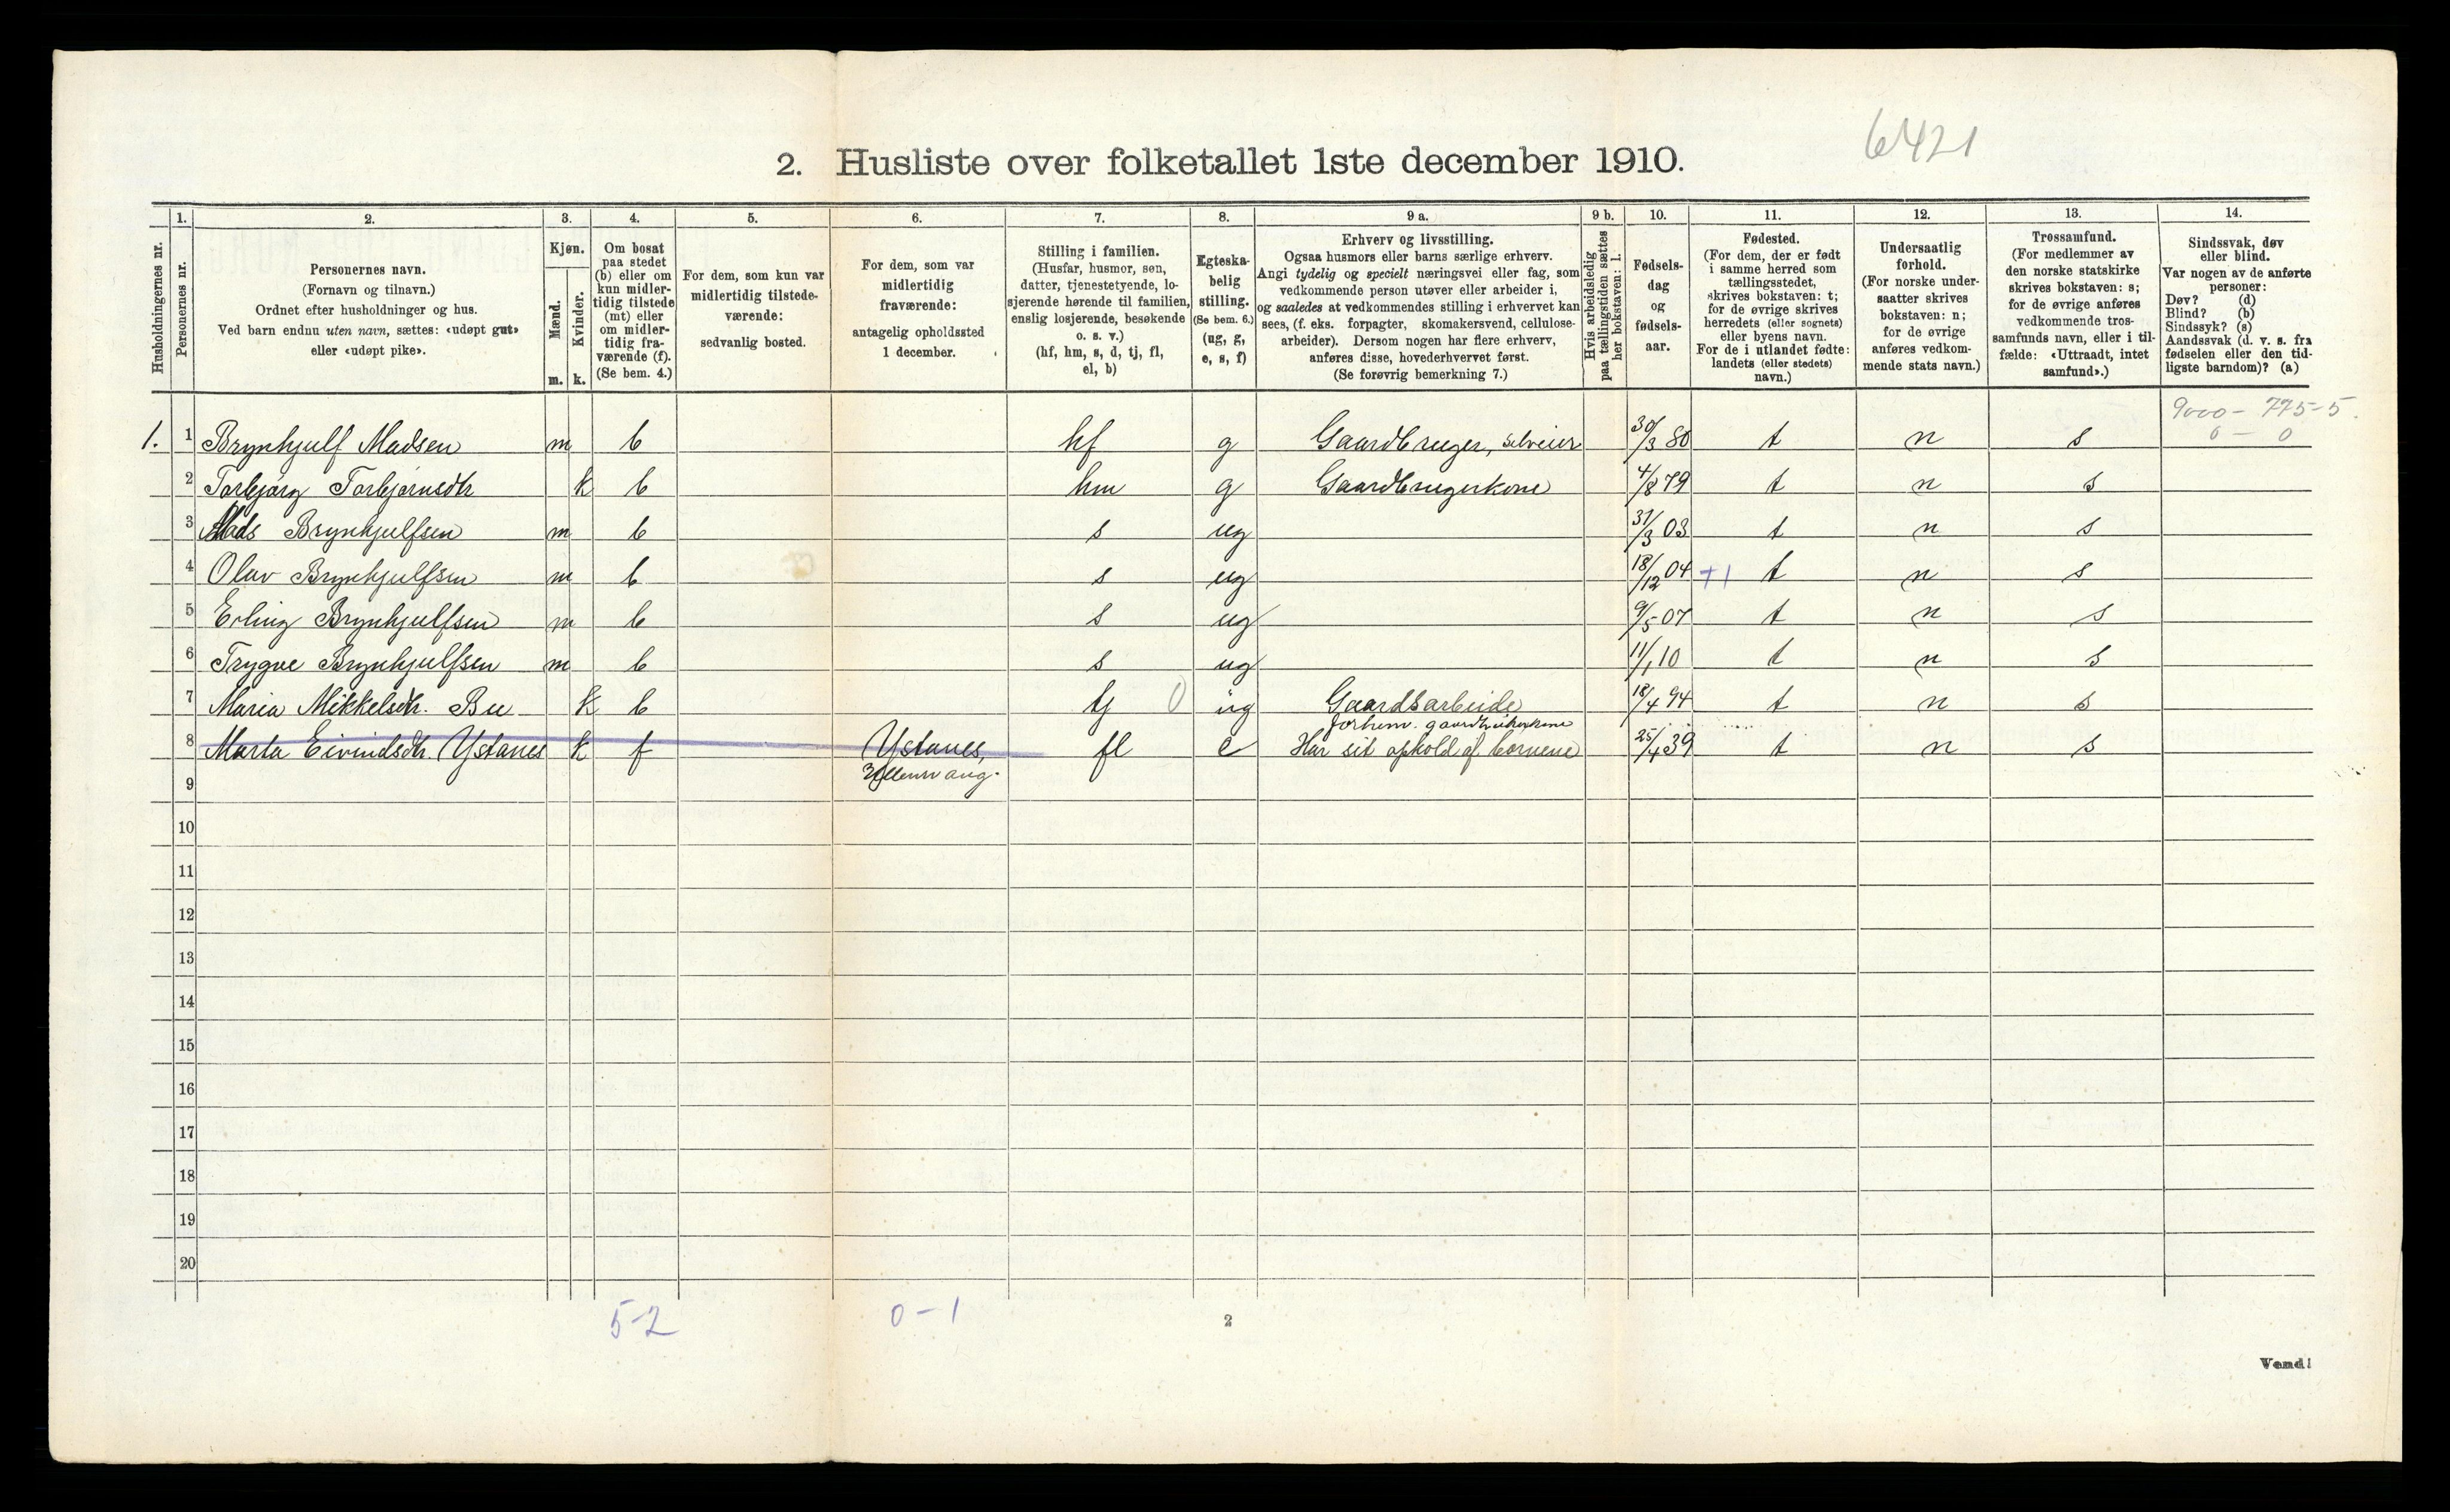 6421
2. Husliste over folketallet 1ste december 1910.
Husholdningernes nr.
1.
Personernes nr.
2.
Personernes navn.
(Fornavn og tilnavn.)
Ordnet efter husholdninger og hus.
Ved barn endnu uten navn, sættes: «udøpt gut»
eller «udøpt pike».
3.
Kjøn.
Mænd.
Kvinder.
m. k.
4.
Om bosat
paa stedet
(b) eller om
kun midler-
tidig tilstede
(mt) eller
om midler-
tidig fra-
værende (f).
(Se bem. 4.)
5.
For dem, som kun var
midlertidig tilstede-
værende:
sedvanlig bosted.
6.
For dem, som var
midlertidig
fraværende:
antagelig opholdssted
1 december.
7.
Stilling i familien.
(Husfar, husmor, søn,
datter, tjenestetyende, lo-
sjerende hørende til familien,
enslig losjerende, besøkende
o. s. v.)
(hf, hm, s, d, tj, fl,
el, b)
8.
Egteska-
belig
stilling.
(Se bem. 6.)
(ug, g,
e, s, f)
9 a.
Erhverv og livsstilling.
Ogsaa husmors eller barns særlige erhverv.
Angi tydelig og specielt næringsvei eller fag, som
vedkommende person utøver eller arbeider i,
og saaledes at vedkommendes stilling i erhvervet kan
sees, (f. eks. forpagter, skomakersvend, cellulose-
arbeider). Dersom nogen har flere erhverv,
anføres disse, hovederhvervet først.
(Se forøvrig bemerkning 7.)
9 b.
Hvis arbeidsledig
paa tællingstiden sættes
her bokstaven: l.
10.
Fødsels-
dag
og
fødsels-
aar.
11.
Fødested.
(For dem, der er født
i samme herred som
tællingsstedet,
skrives bokstaven: t;
for de øvrige skrives
herredets (eller sognets)
eller byens navn.
For de i utlandet fødte:
landets (eller stedets)
navn.)
12.
Undersaatlig
forhold.
(For norske under-
saatter skrives
bokstaven: n;
for de øvrige
anføres vedkom-
mende stats navn.)
13.
Trossamfund.
(For medlemmer av
den norske statskirke
skrives bokstaven: s;
for de øvrige anføres
vedkommende tros-
samfunds navn, eller i til-
fælde: «Uttraadt, intet
samfund».)
14.
Sindssvak, døv
eller blind.
Var nogen av de anførte
personer:
Døv? (d)
Blind? (b)
Sindssyk? (s)
Aandssvak (d. v. s. fra
fødselen eller den tid-
ligste barndom)? (a)
9000 - 775-5.
0 - 0
1. 1 Brynhjulf Madsen m b hf g Gaardbruger, selveier 30/3 80 t n s
2 Torbjørg Torbjørnsdtr k b hm g Gaardbrugerkone 4/8 79 t n s
3 Mads Brynhjulfsen m b s ug 31/3 03 t n s
4 Olav Brynhjulfsen m b s ug 18/12 04 +1 t n s
5 Erling Brynhjulfsen m b s ug 9/5 07 t n s
6 Trygve Brynhjulfsen m b s ug 11/1 10 t n s
7 Maria Mikkelsdtr. Bu k b tj 0 ug Gaardsarbeide 18/4 94 t n s
8 Marta Eivindsdtr. Ystanes k f Ystanes, fl e Har sit ophold af børnene 25/4 39 t n s
9
10
11
12
13
14
15
16
17
18
19
20
5-2
0-1
2
Vend!